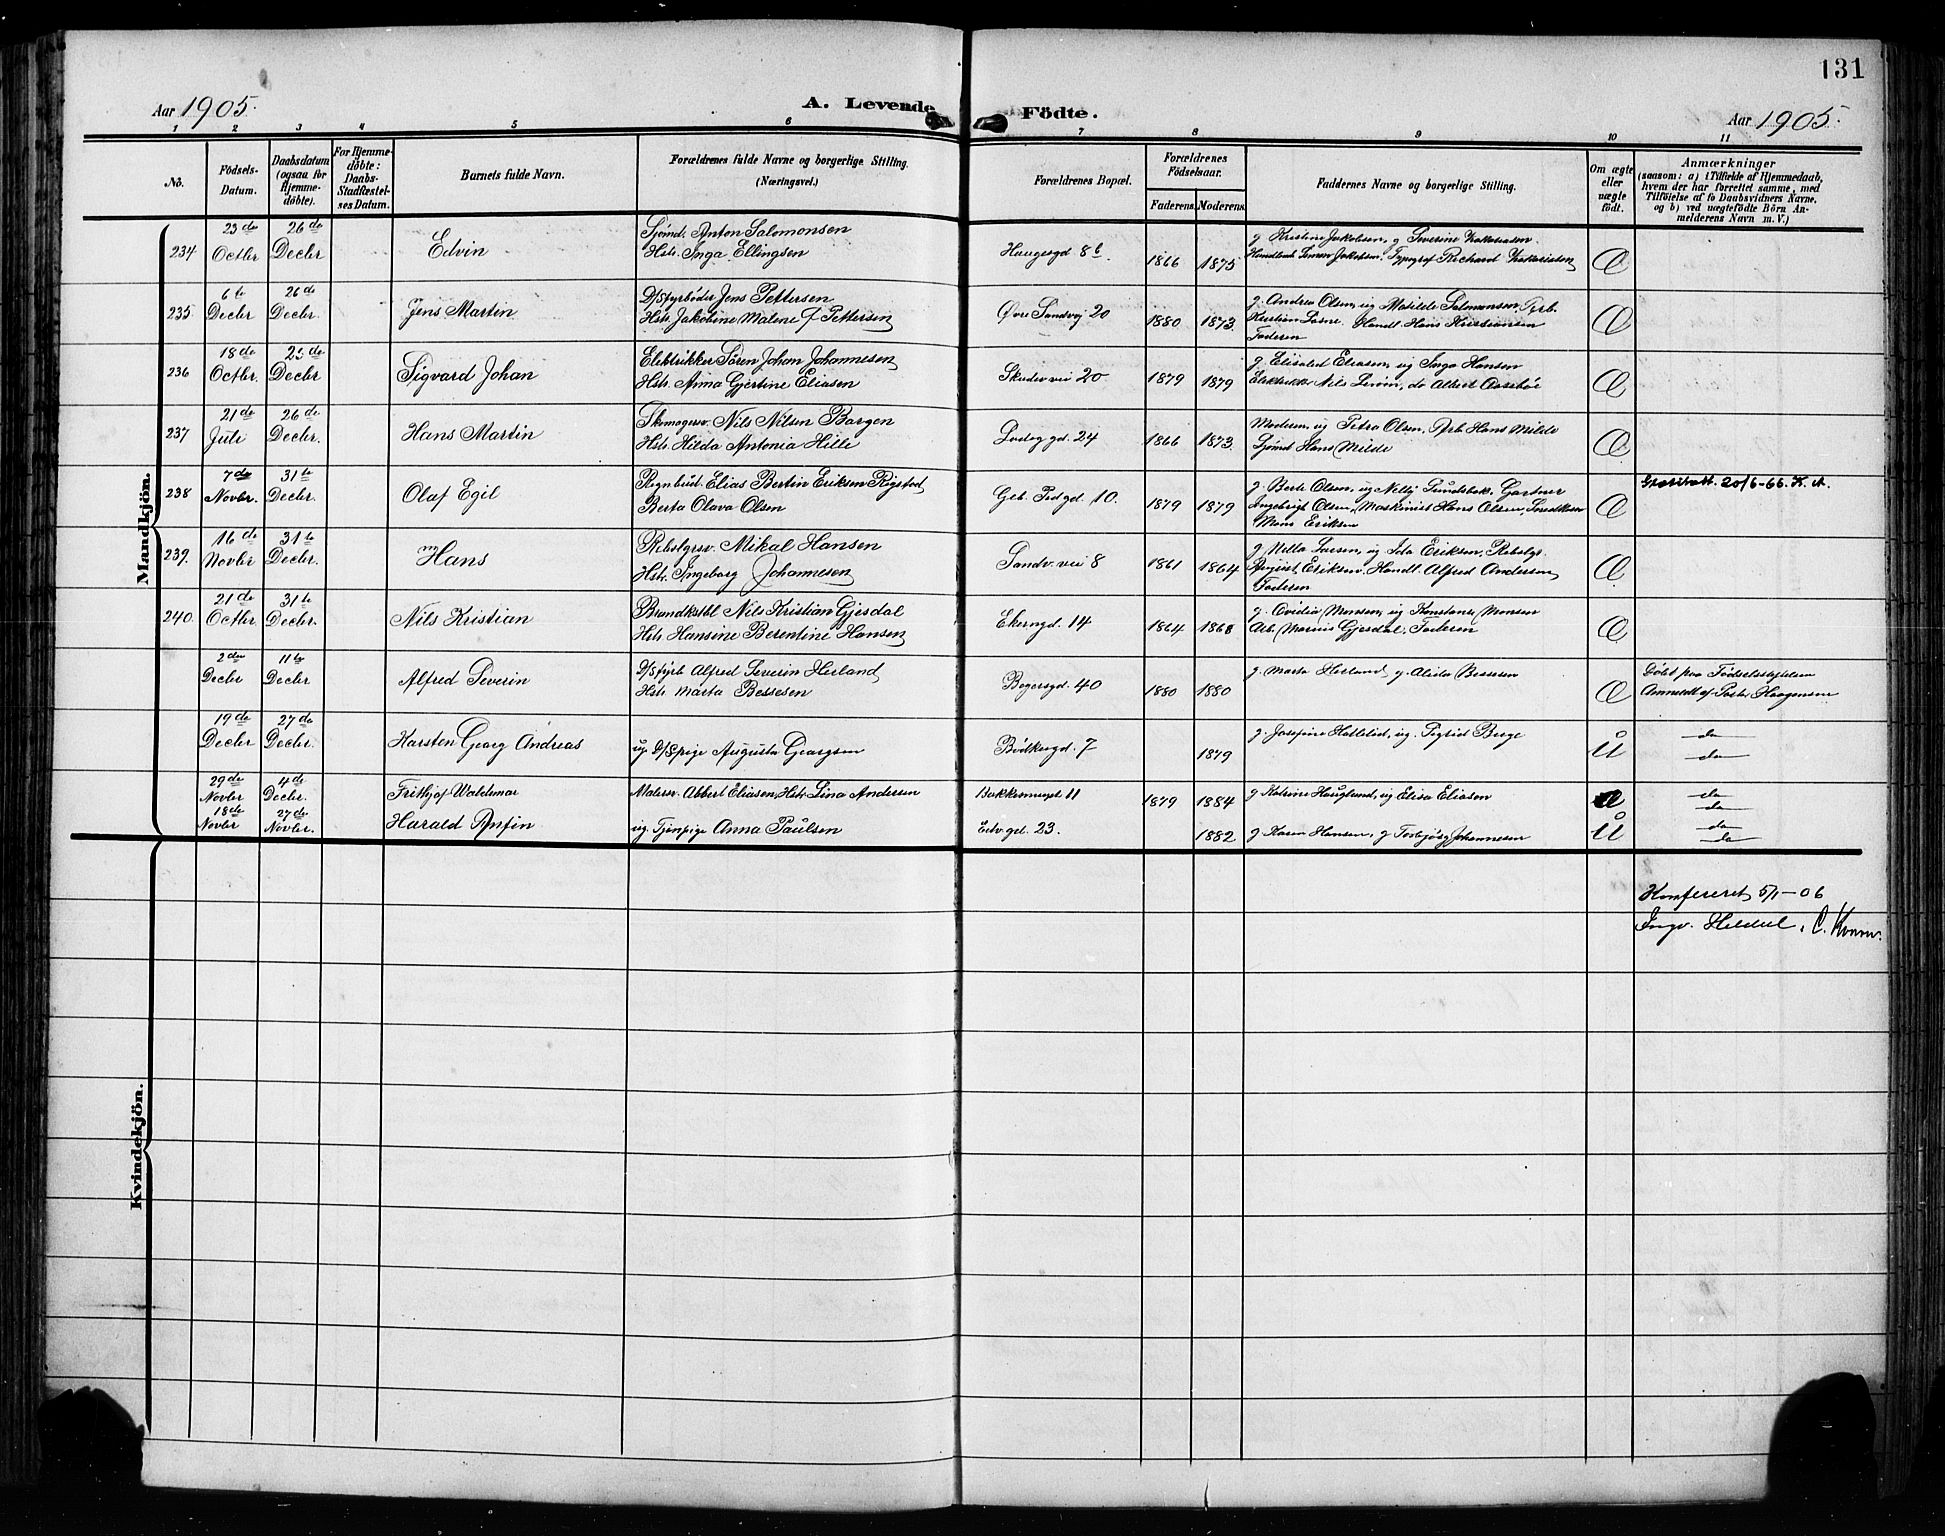 131
Aar 1905. A. Levende Födte. Aar 1905.
1 2 3 4 5 6 7 8 9 10 11
No. Födsels-Datum. Daabsdatum (ogsaa for Hjemme-döbte). For Hjemme-döbte: Daabs-Stadfæstel-ses Datum. Barnets fulde Navn. Forældrenes fulde Navne og borgerlige Stilling. (Næringsvei.) Forældrenes Bopæl. Forældrenes Födselsaar. Faderens. Moderens. Faddernes Navne og borgerlige Stilling. Om ægte eller uægte födt. Anmærkninger (saasom: a) i Tilfælde af Hjemmedaab, hvem der har forrettet samme, med Tilföielse af to Daabsvidners Navne, og b) ved uægtefödte Börn Anmelderens Navn m. V.)
Mandkjön.
234 23de Octbr 26de Decbr Edvin Sjømd. Anton Salomonsen
Hstr. Inga Ellingsen Haugesgd 8b 1866 1875 g. Kristine Jakobsen, g. Severine Zakariasen
Handlbetj. Simon Jakobsen, Typograf Richard Zakariasen Æ
235 6te Decbr 26de Decbr. Jens Martin D/Sfyrbøder Jens Pettersen
Hstr. Jakobine Malene f Pettersen Øvre Sandvej 20 1880 1873. g. Andrea Olsen, ug Matilde Salomonsen, Arb.
Kristian Lasne, Handl. Hans Kristiansen
Faderen Æ
236 18de Octbr. 25de Decbr. Sigvard Johan Elektrikker Sören Johan Johannesen
Hstr. Anna Gjertine Eliasen Skudev vei 20 1879 1879 g. Elisabet Eliasen, ug Inga Hansen
Elektrikk. Nils Simon, do Albert Aarsböe Æ
237 21de Juli 26de Decbr. Hans Martin Skomagersv. Nils Nilsen Bargen
Hstr. Hilda Antonia Hille gd. 24 1866 1873. Moderen, ug Petra Olsen, Arb. Hans Milde
Sjömd Hans Milde Æ
238 7de Novbr. 31te Decbr. Olaf Egil Regnbud. Elias Bertin Eriksen Rystad
Berta Olava Olsen Gbl. Pedgd. 10. 1879 1879 g. Berte Olsen, ug Nelly Sundsbak, Gartner
Ingebrigt Olsen, Maskinist Hans Olsen,
Mons Eriksen Æ Gratisatt. 20/6-66. K. A.
239. 16de Novbr 31te Decbr. Hans Rebslgrsv. Mikal Hansen
Hstr. Ingeborg Johannesen Sandv. vei 8 1861 1864 g. Nilla Larsen, ug Ida Eriksen, Rebslgs.
August Eriksen, Handl. Alfred Andersen
Faderen Æ
240. 21de Octbr 31te Decbr. Nils Kristian Brandkstbl Nils Kristian Gjesdal
Hstr Hansine Berentine Hansen Ekerngd. 14 1864 1868 g. Ovidia Monsen, ug Konstance Monsen
Arb. Marius Gjesdal, Faderen Æ
2den Decbr 11te Decbr Alfred Severin D/Sfyrb Alfred Severin Herland
Hstr Marta Bessesen Bogersgd. 40 1880 1880 g. Marta Herland, g. Alida Bessesen Æ Döbt paa Födselsstiftelsen
Anmeldt af Past. Haagensen
19de Decbr 27de Decbr. Karsten Georg Andreas ug D/Spige Augusta Georgsen Bödkergd. 7 1879 g. Josefine Halleliid, ug. Sigrid Berge U do do
29de Novbr 4de Decbr. Frithjof Waldemar Malersv. Albert Eliasen, Hstr. Lina Andersen Bakkesmuget 11 1879 1884 g Katrine Hauglund, ug Elisa Eliasen Æ do do
18de Novbr 27de Novbr. Harald Antin ug. Tjenpige Anna Paulsen Edv. gd. 23. 1882 g. Karen Hansen, g Torbjörg Johannesen U do do
Kvindekjön.
Konfereret 5/1-06
Ingv. Heldal, C. Kvam.